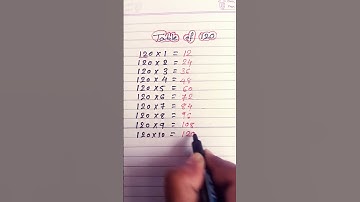 Table of 120
120 x 1 = 12
120 x 2 = 24
120 x 3 = 36
120 x 4 = 48
120 x 5 = 60
120 x 6 = 72
120 x 7 = 84
120 x 8 = 96
120 x 9 = 108
120 x 10 = 120